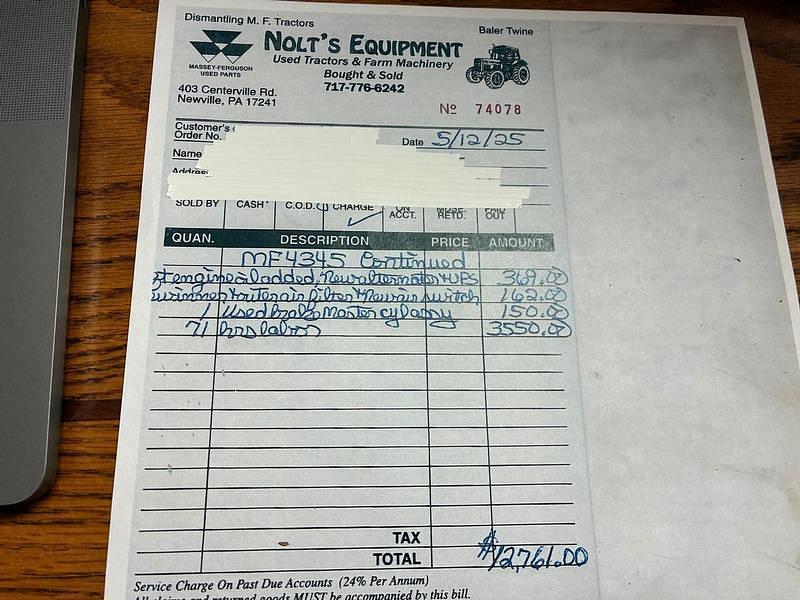 Dismantling M. F. Tractors
Baler Twine
NOLT'S EQUIPMENT
MASSEY-FERGUSON
USED PARTS
Used Tractors & Farm Machinery
Bought & Sold
717-776-6242
403 Centerville Rd.
Newville, PA 17241
No 74078
Customer's
Order No.
Date 5/12/25
Name
Address
SOLD BY CASH C.O.D. CHARGE ON ACCT. MDSE. RETD. PAID OUT
QUAN. DESCRIPTION PRICE AMOUNT
MF4345 Continued
engine added, New alternator + UPS 369.00
inner + outer air filter + New air switch 162.00
1 Used Brake Master cyl assy 150.00
71 hrs labor 3550.00
TAX
TOTAL $12,761.00
Service Charge On Past Due Accounts (24% Per Annum)
All claims and returned goods MUST be accompanied by this bill.